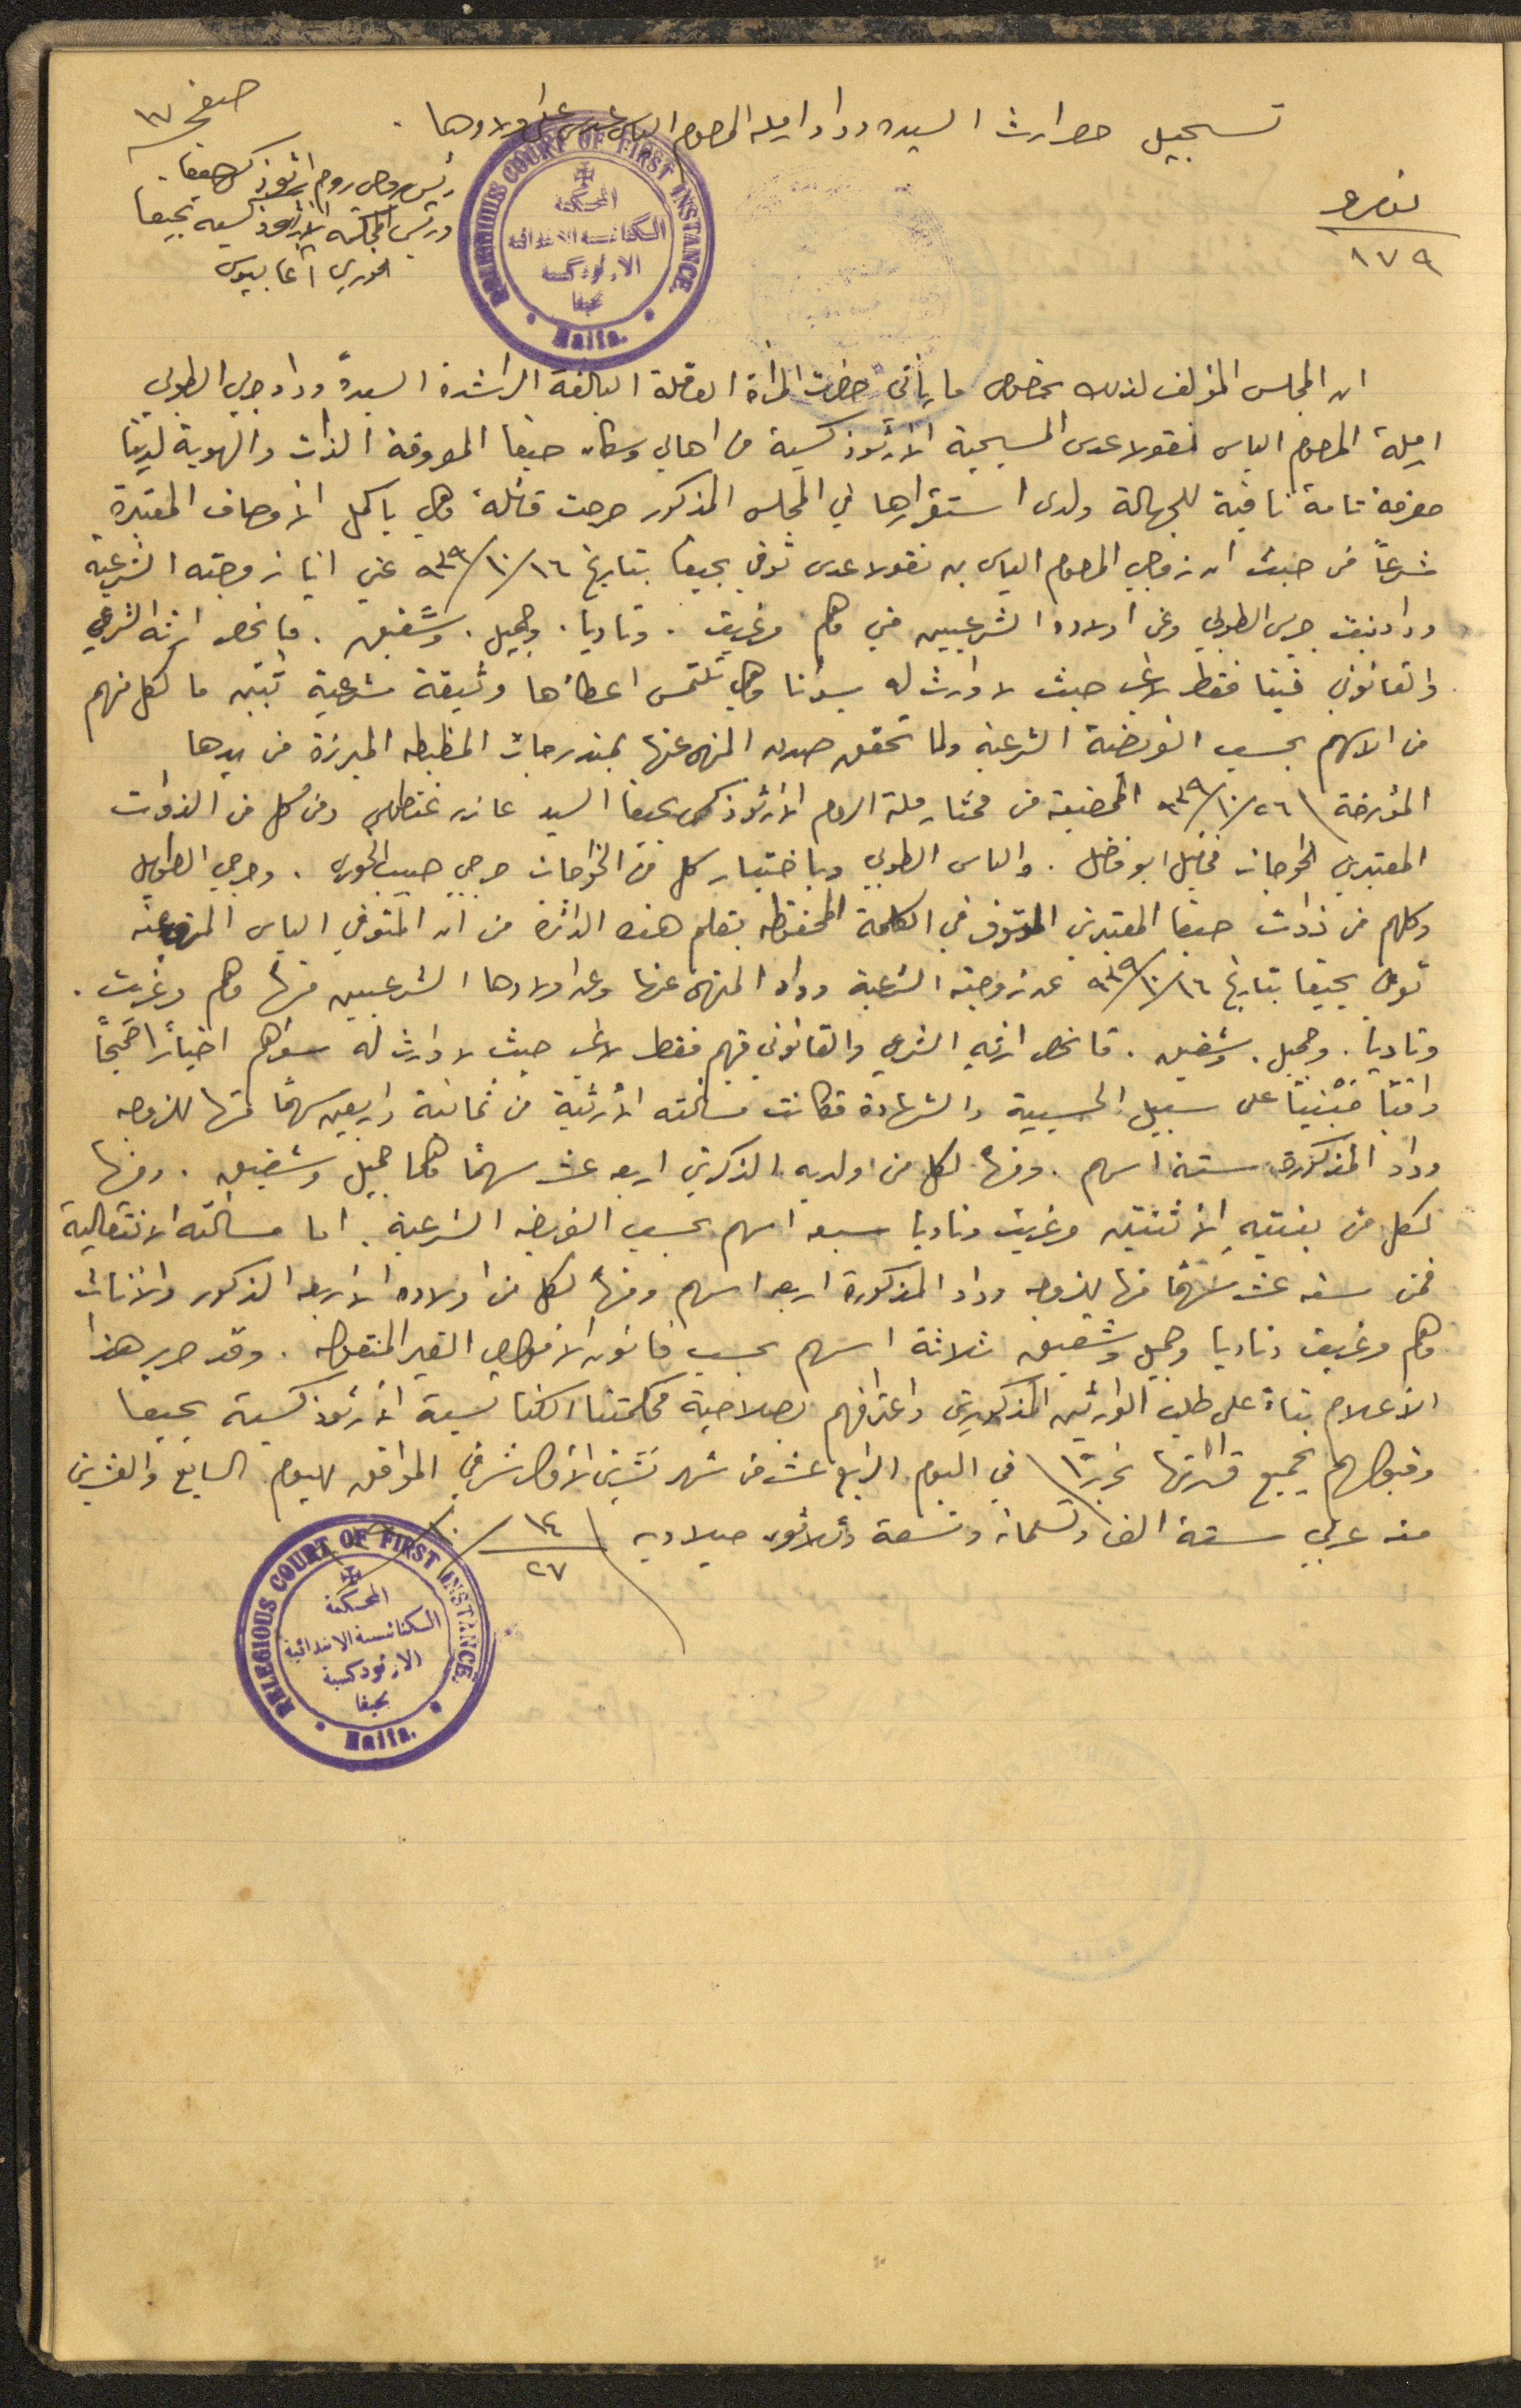 صفحة ١٧
تسجيل حصر ارث السيده وداد ارملة المرحوم الياس عدس على اولادها .
نمره
١٧٩
رئيس روحي روم ارثوذكس حيفا
ورئيس المحكمة الارثوذكسية بحيفا
الخوري اغابيوس
RELEGIOUS COURT OF FIRST INSTANCE.
المحكمة
الكنائسية الابتدائية
الارثوذكسية
بحيفا
Haifa.
ان المجلس المؤلف لذلك بخصوص ما يأتي حضرت المرأة العاقلة البالغة الراشدة السيدة وداد جرجس الطوبي
ارملة المرحوم الياس نقولا عدس المسيحية الارثوذكسية من اهالي وسكان حيفا المعروفة الذات والهوية لدينا
معرفة تامة نافية للجهالة ولدى استقرارها في المجلس المذكور صرحت قائلة وهي باكمل الاوصاف المعتبرة
شرعاً من حيث ان زوجي المرحوم الياس بن نقولا عدس توفي بحيفا بتاريخ ١٦/١٠/٩٣٩ عني انا زوجته الشرعية
وداد بنت جرجس الطوبي وعن اولاده الشرعيين مني وهم مرغريت . وناديا . وجميل . وشفيق . فانحصر ارثه الشرعي
والقانوني فينا فقط لا غير حيث لا وارث له سوانا وهي تلتمس اعطائها وثيقة شرعية تبين ما لكل منهم
من الاسهم بحسب الفريضة الشرعية ولما تحقق صدق المنهى عنها بمندرجات المظبطه المبرزة من يدها
المؤرخة ٢٦/١٠/٩٣٩ الممضية من مختار ملة الروم الارثوذكس بحيفا السيد عازر غنطوس ومن كل من الذوات
المعتبرين الخواجات مخايل ابو فاضل . والياس الطوبي وباختيار كل من الخواجات جرجي حبيب الخوري . وجرجي الطوبل
وكلهم من ذوات حيفا المعتبرين الموثوق في الكلمة المحفوظه بقلم هذه الدائرة من ان المتوفي الياس المنهى عنه
توفى بحيفا بتاريخ ١٦/١٠/٩٣٩ عن زوجته الشرعية وداد المنهى عنها وعن اولادها الشرعيين منها وهم مرغريت .
وناديا . وجميل . وشفيق . فانحصر ارثه الشرعي والقانوني فيهم فقط لا غير حيث لا وارث له سواهم اخباراً صحيحاً
وافياً مبنياً على سبيل الحسبية والشهادة فكانت مسألته الأرثية من ثمانية واربعين سهماً منها للزوجه
وداد المذكورة ستة اسهم . ومنها لكل من اولديه الذكرين اربعة عشر سهماً وهما جميل وشفيق . ومنها
لكل من بنتيه الأثنتين مرغريت وناديا سبعة اسهم بحسب الفريضه الشرعية . اما مسألته الانتقالية
فمن ستة عشر سهماً منها للزوجه وداد المذكورة اربعة اسهم ومنها لكل من اولاده الاربعه الذكور والاناث
وهم مرغريت وناديا وجميل وشفيق ثلاثة اسهم بحسب قانون الاموال الغير المنقوله . وقد حرر هذا
الاعلام بناء على طلب الوارثين المذكورين واعترافهم بصلاحية محكمتنا الكنائسية الارثوذكسية بحيفا
وقبولهم بجميع قراراتها تحريراً في اليوم الرابع عشر من شهر تشرين الاول شرقي الموافق لليوم السابع والعشرين
منه غربي سنة الف وتسعماية وتسعة وثلاثون ميلاديه
١٤
٢٧
RELEGIOUS COURT OF FIRST INSTANCE.
المحكمة
الكنائسية الابتدائية
الارثوذكسية
بحيفا
Haifa.